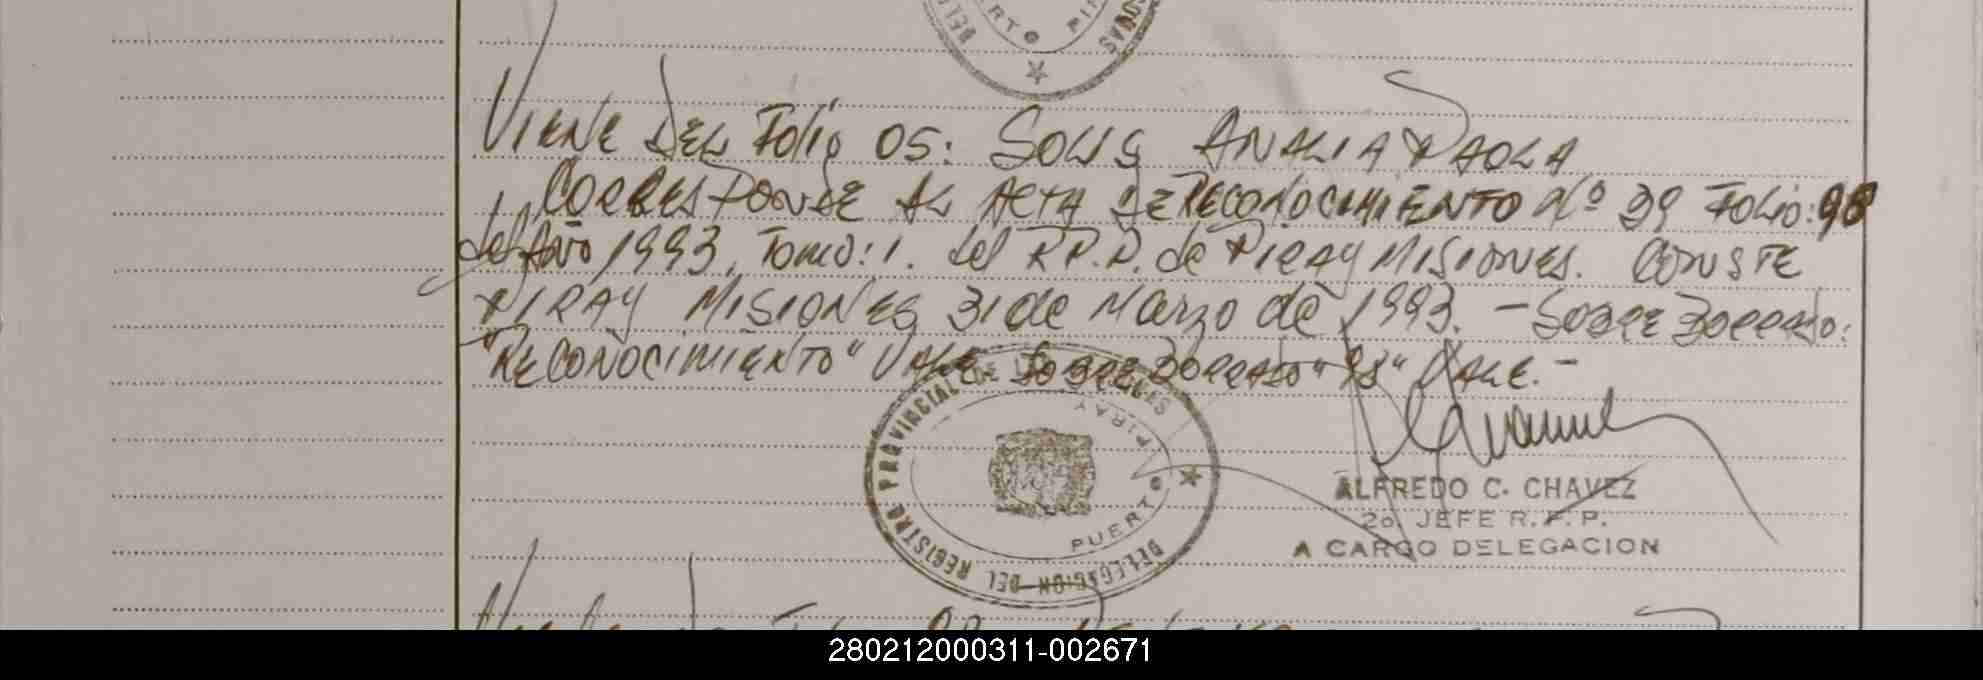 VIENE DEL Folio 05: SOLIS ANALIA PAOLA
CORRESPONDE AL ACTA DE RECONOCIMIENTO Nº 39 Folio: 98
del Año 1993, Tomo: 1. del R.P.P. de PIRAY MISIONES. CONSTE
PIRAY MISIONES 31 de Marzo de 1993. - SOBRE BORRADO:
"RECONOCIMIENTO" VALE SOBRE BORRADO "98" VALE. -
DELEGACION DEL REGISTRO PROVINCIAL DE LAS PERSONAS
PUERTO PIRAY
ALFREDO C. CHAVEZ
2o. JEFE R.P.P.
A CARGO DELEGACION
280212000311-002671